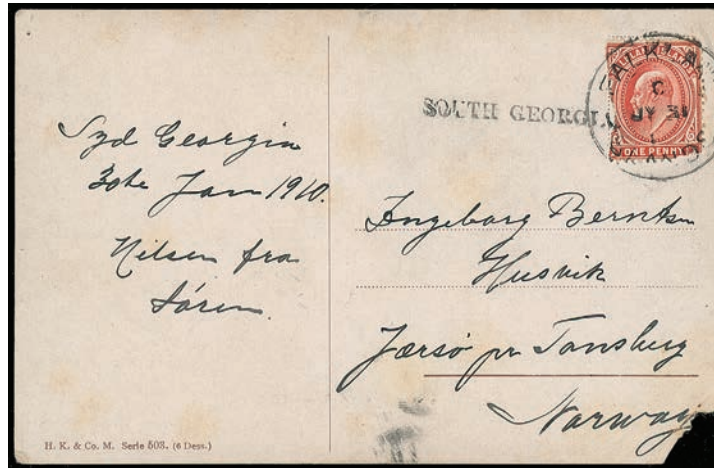 Syd Georgia
30te Jan 1910.
Hilsen fra
Søren.
H. K. & Co. M. Serie 503. (6 Dess.)
SOUTH GEORGIA
FALKLAND
JA 31
ONE PENNY
Ingeborg Berntsen
Husvik
Jærsø pr Tønsberg
Norway